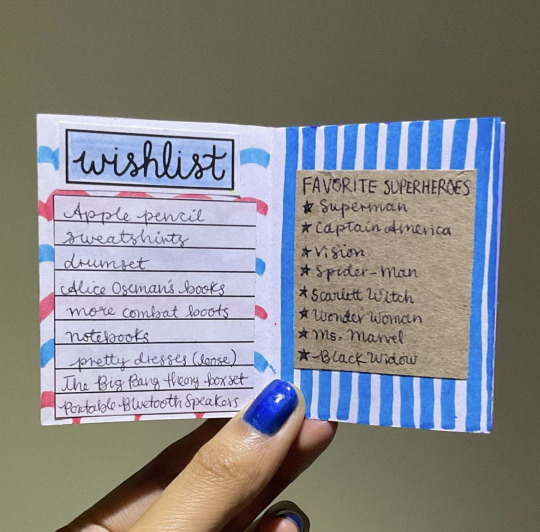 wishlist
Apple pencil
sweatshirts
drumset
Alice Oseman's books
more combat boots
notebooks
pretty dresses (loose)
The Big Bang theory box set
Portable Bluetooth Speakers
FAVORITE SUPERHEROES
★ Superman
★ Captain America
★ Vision
★ Spider-Man
★ Scarlett Witch
★ Wonder Woman
★ Ms. Marvel
★ Black Widow